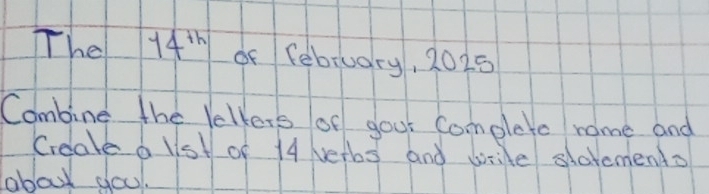 The 14th of February, 2025
Combine the letters of your Complete name and
Create a list of 14 verbs and write statements
about you.